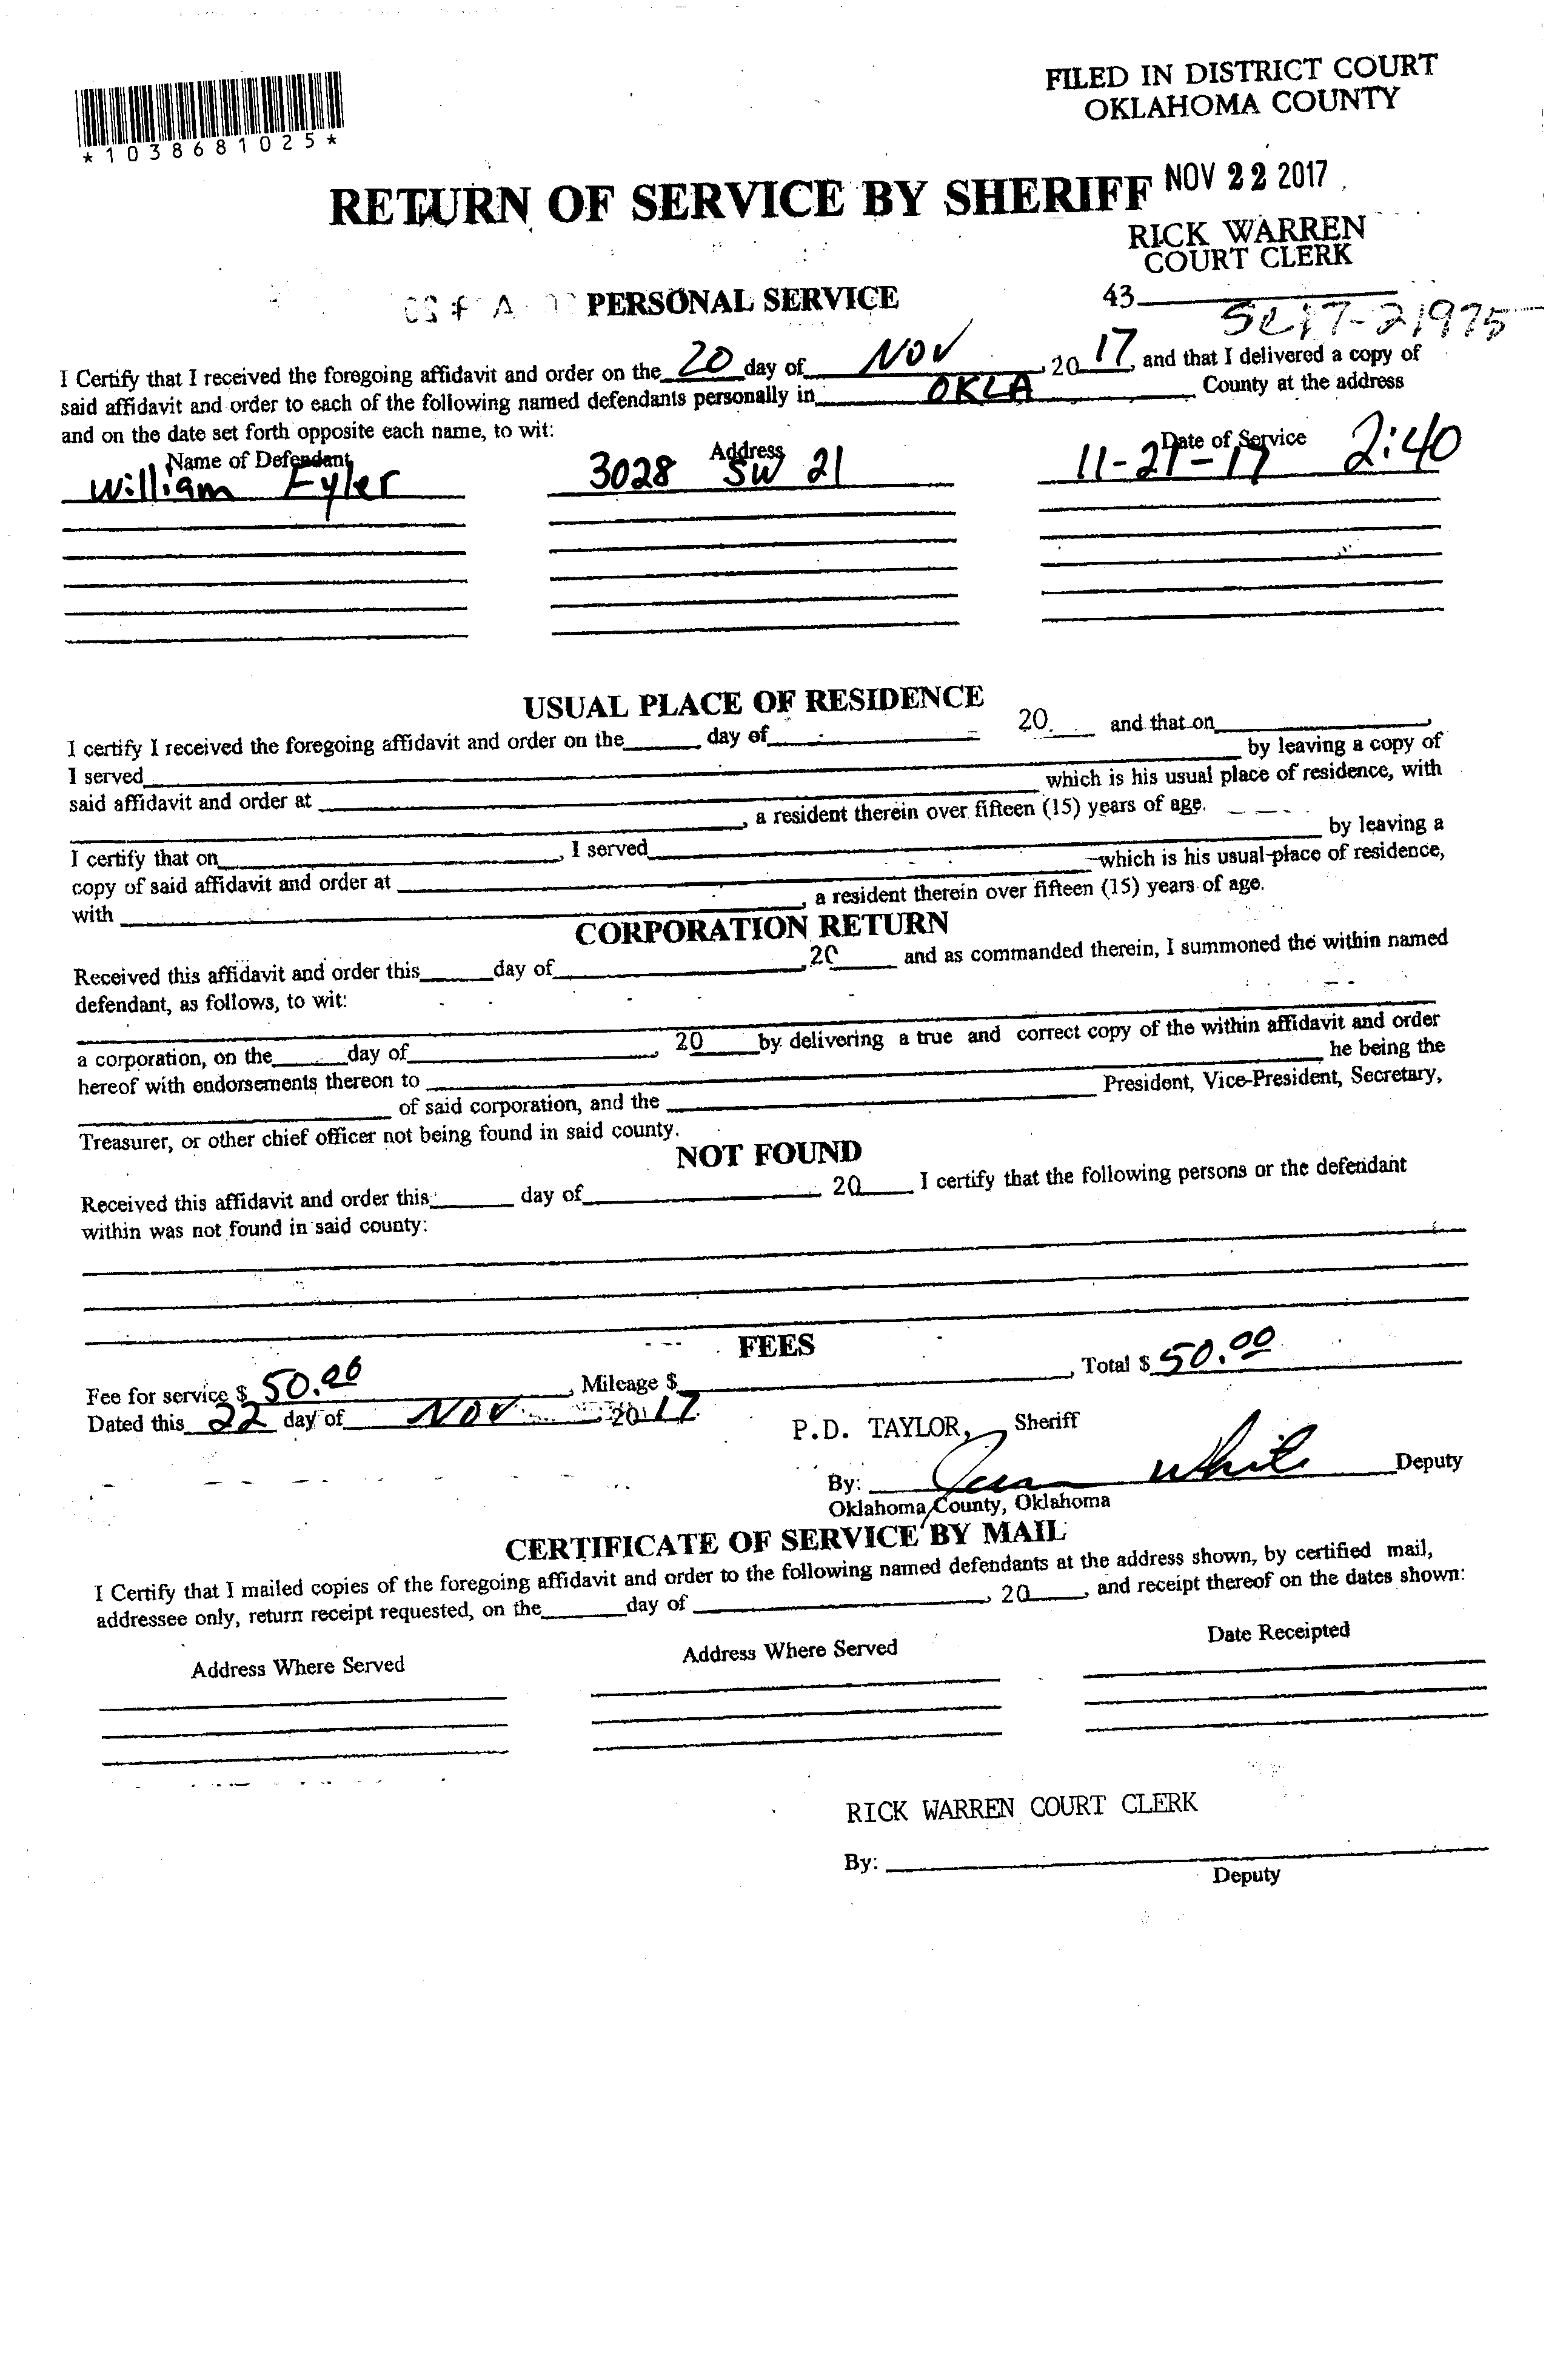 FILED IN DISTRICT COURT
OKLAHOMA COUNTY
*1038681025*
RETURN OF SERVICE BY SHERIFF NOV 22 2017
RICK WARREN
COURT CLERK
PERSONAL SERVICE 43
SC17-21975
I Certify that I received the foregoing affidavit and order on the 20 day of NOV, 20 17, and that I delivered a copy of
said affidavit and order to each of the following named defendants personally in OKLA County at the address
and on the date set forth opposite each name, to wit:
Name of Defendant Address Date of Service
William Eyler 3028 SW 21 11-21-17 2:40
USUAL PLACE OF RESIDENCE
I certify I received the foregoing affidavit and order on the day of 20 and that on
I served by leaving a copy of
said affidavit and order at which is his usual place of residence, with
, a resident therein over fifteen (15) years of age.
I certify that on , I served by leaving a
copy of said affidavit and order at which is his usual place of residence,
with , a resident therein over fifteen (15) years of age.
CORPORATION RETURN
Received this affidavit and order this day of , 20 and as commanded therein, I summoned the within named
defendant, as follows, to wit:
a corporation, on the day of , 20 by delivering a true and correct copy of the within affidavit and order
hereof with endorsements thereon to he being the
of said corporation, and the President, Vice-President, Secretary,
Treasurer, or other chief officer not being found in said county.
NOT FOUND
Received this affidavit and order this day of 20 I certify that the following persons or the defendant
within was not found in said county:
FEES
Fee for service $ 50.00 , Mileage $ , Total $ 50.00
Dated this 22 day of NOV 20 17
P.D. TAYLOR, Sheriff
By: White Deputy
Oklahoma County, Oklahoma
CERTIFICATE OF SERVICE BY MAIL
I Certify that I mailed copies of the foregoing affidavit and order to the following named defendants at the address shown, by certified mail,
addressee only, return receipt requested, on the day of , 20 , and receipt thereof on the dates shown:
Address Where Served Address Where Served Date Receipted
RICK WARREN COURT CLERK
By:
Deputy